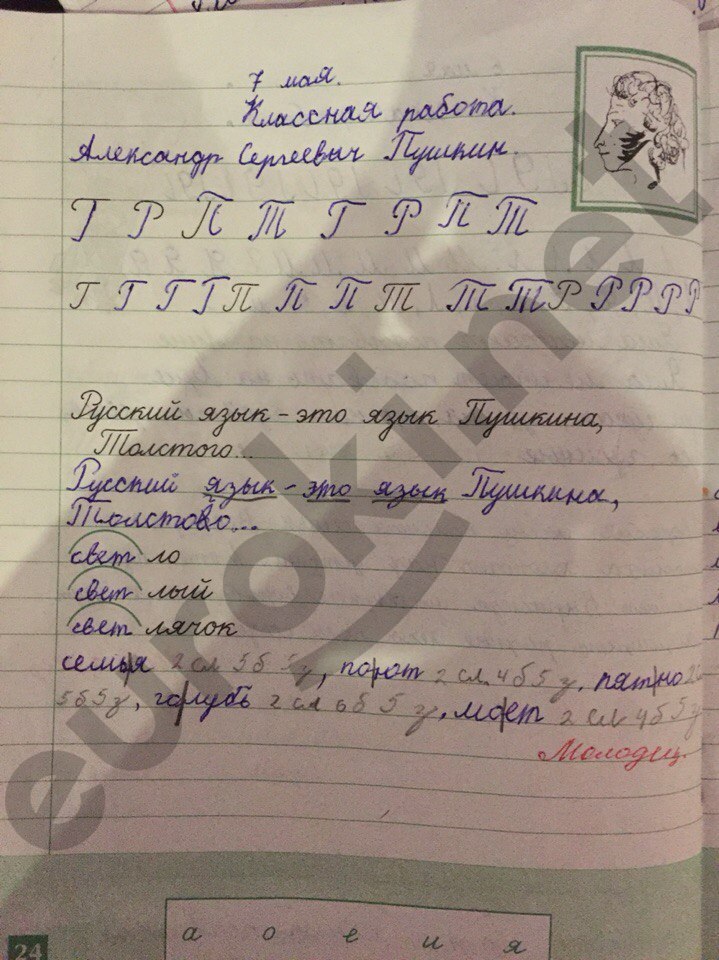 7 мая.
Классная работа.
Александр Сергеевич Пушкин.
Г Р П Т Г Р П Т
Г Г Г Г П П П Т Т Т Р Р Р Р Р
Русский язык - это язык Пушкина,
Толстого...
Русский язык - это язык Пушкина,
Толстово...
свет ло
свет лый
свет лячок
семья 2 сл 5б 5з, поют 2 сл. 4б 5з, пятно 2сл
5б 5з, голубь 2 сл 6б 5з, моет 2 сл 4б 5з
Молодец.
24
а о е и я
eurokinet